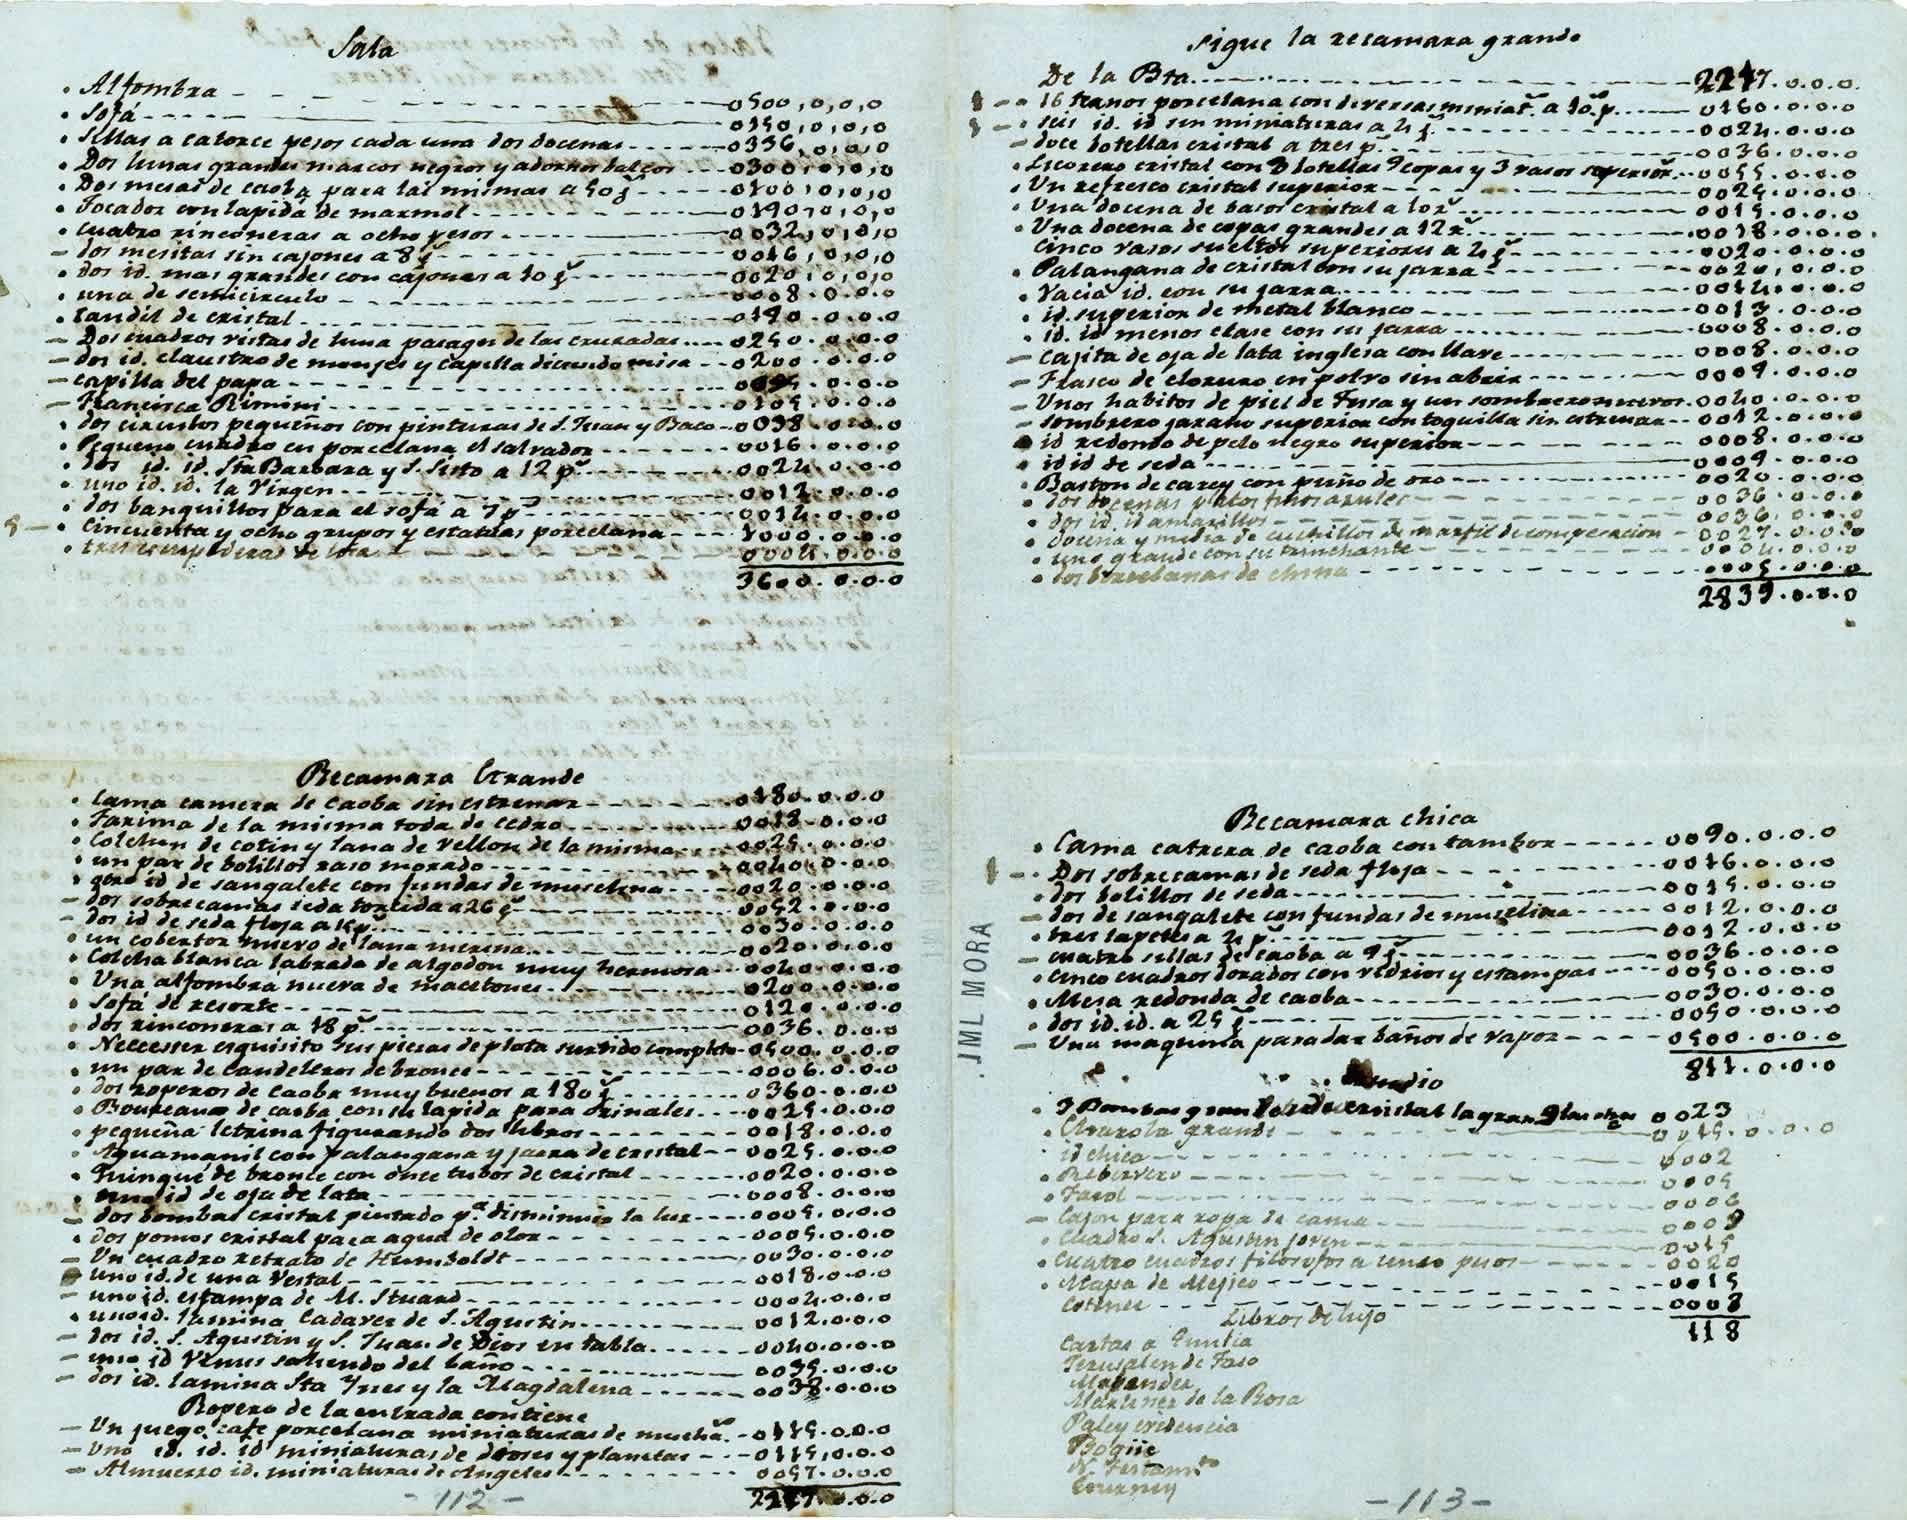 Sala
• Alfombra - - - - 0500,0,0,0
• Sofá - - - - 0150,0,0,0
• Sillas a catorce pesos cada una dos docenas - - - 0336,0,0,0
• Dos lunas grandes marcos negros y adornos - - - 0300,0,0,0
• Dos mesas de caoba para las mismas a 50 p.s - - - 0100,0,0,0
• Tocador con lapida de marmol - - - 0190,0,0,0
• cuatro rinconeras a ocho pesos - - - 0032,0,0,0
— dos mesitas sin cajones a 8 p.s - - - 0016,0,0,0
• dos id. mas grandes con cajones a 10 p.s - - - 0020,0,0,0
• una de semicirculo - - - 0008.0.0.0
• candil de cristal - - - 0190.0.0.0
— Dos cuadros vistas de luna pasages de las cruzadas - - - 0250.0.0.0
— dos id. claustro de monjes y capilla diciendo misa - - - 0200.0.0.0
— capilla del papa - - - .0.0.0
— Francisca Rimini - - - 0105.0.0.0
• dos circulos pequeños con pinturas de S. Juan y Baco - 0038.0.0.0
• Pequeño cuadro en porcelana el salvador - - - 0016.0.0.0
• dos id. id. Sta Barbara y S. Sisto a 12 p.s - - - 0024.0.0.0
• uno id. id. la Virgen - - - 0012.0.0.0
• dos banquillos para el sofá a 7 p.s - - - 0014.0.0.0
• cincuenta y ocho grupos y estatuas porcelana - - - 1000.0.0.0
• tres escupideras de loza - - - 0004.0.0.0
3600.0.0.0
Recamara Grande
• Cama camera de caoba sin estrenar - - - 0180.0.0.0
• Tarima de la misma toda de cedro - - - 0018.0.0.0
• Colchon de cotin y lana de vellon de la misma - - - 0025.0.0.0
• un par de bolillos raso morado - - - 0040.0.0.0
• otro id de sangalete con fundas de muselina - - - 0020.0.0.0
— dos sobrecamas seda torcida a 26 p.s - - - 0052.0.0.0
— dos id de seda floja a 15 p.s - - - 0030.0.0.0
• un cobertor nuevo de lana merina - - - 0020.0.0.0
• Colcha blanca labrada de algodon muy hermosa - - - 0040.0.0.0
• Una alfombra nueva de macetones - - - 0200.0.0.0
• Sofá de resorte - - - 0120.0.0.0
• dos rinconeras a 18 p.s - - - 0036.0.0.0
• Neccesser esquisito sus piezas de plata surtido completo - 0500.0.0.0
• un par de candeleros de bronce - - - 0006.0.0.0
• dos roperos de caoba muy buenos a 180 p.s 0360.0.0.0
• Boureaux de caoba con su lapida para orinales - - - 0025.0.0.0
• pequeña letrina figurando dos libros - - - 0018.0.0.0
• Aguamanil con palangana y jarra de cristal - - 0025.0.0.0
• Quinqué de bronce con once tubos de cristal - - - 0020.0.0.0
• uno id de oja de lata - - - 0008.0.0.0
— dos bombas cristal pintado p.a disminuir la luz - - - 0005.0.0.0
• dos pomos cristal para agua de olor - - - 0005.0.0.0
— Un cuadro retrato de Humboldt - - - 0030.0.0.0
uno id. de una Vestal - - - 0018.0.0.0
— uno id. estampa de M. Stuard - - - 0004.0.0.0
• uno id. lamina Cadaver de S. Agustin - - - 0012.0.0.0
— dos id. S. Agustin y S. Juan de Dios en tabla - - - 0040.0.0.0
— uno id Venus saliendo del baño - - - 0035.0.0.0
— dos id. lamina Sta Ynes y la Magdalena - - - 0038.0.0.0
Ropero de la entrada contiene
— Un juego café porcelana miniaturas de - 0115.0.0.0
— Uno id. id. id miniaturas de dioses y planetas - - - 0115.0.0.0
— Almuerzo id. miniaturas de Angeles - - - 0057.0.0.0
2247.0.0.0
- 112 -
Sigue la recamara grande
De la Bta - - - 2247.0.0.0
— 16 porcelana con diversas miniat.s a 10 p.s - - - 0160.0.0.0
— • seis id. id sin miniaturas a 4 p.s - - - 0024.0.0.0
— doce botellas cristal a tres p.s - - - 0036.0.0.0
• Licorero cristal con 3 botellas 9 copas y 3 vasos superior.s - - 0055.0.0.0
• Un refresco cristal superior - - - 0025.0.0.0
• Una docena de basos cristal a 10 r.s - - - 0015.0.0.0
• Una docena de copas grandes a 12 r.s - - - 0018.0.0.0
cinco vasos sueltos superiores a 4 p.s - - - 0020.0.0.0
• Palangana de cristal con su jarra - - - 0020.0.0.0
• Vacia id. con su jarra - - - .0.0.0
• id. superior de metal blanco - - - 0013.0.0.0
• id. id menos clase con su jarra - - - 0008.0.0.0
— Cajita de oja de lata inglesa con llave - - - 0008.0.0.0
— Frasco de cloruro en polvo sin abrir - - - .0.0.0
— Unos habitos de piel de y un sombrero - 0040.0.0.0
— sombrero jarano superior con toquilla sin estrenar - - 0012.0.0.0
id redondo de pelo negro superior - - - 0008.0.0.0
• id id de seda - - - .0.0.0
• Baston de carey con puño de oro - - - 0020.0.0.0
• dos docenas platos finos azules - - - 0036.0.0.0
• dos id. id amarillos - - - 0036.0.0.0
• docena y media de cuchillos de marfil de composicion - 0027.0.0.0
• uno grande con su trinchante - - - 0004.0.0.0
• dos de china - - - 0005.0.0.0
2839.0.0.0
JML MORA
Recamara chica
• Cama catrera de caoba con tambor - - - 0090.0.0.0
— • Dos sobrecamas de seda floja - - - 0016.0.0.0
• dos bolillos de seda - - - 0015.0.0.0
— dos de sangalete con fundas de muselina - - - 0012.0.0.0
• tres tapetes a 4 p.s - - - 0012.0.0.0
— cuatro sillas de caoba a 9 p.s - - - 0036.0.0.0
• Cinco cuadros dorados con vidrios y estampas - - - 0050.0.0.0
• Mesa redonda de caoba - - - 0030.0.0.0
• dos id. id. a 25 p.s - - - 0050.0.0.0
— Una maquina para dar baños de vapor - - - 0500.0.0.0
811.0.0.0
Estudio
• 3 Bombas cristal la grande 0023
• grande - - - 0015.0.0.0
• id chica - - - 0002
• Rebervero - - - 0005
• Farol - - - 0006
— Cajon para ropa de cama - - - 0009
• Cuadro S. Agustin joven - - - 0015
• cuatro cuadros filosofos a cinco pesos - - - 0020
• Mapa de Mejico - - - 0015
- - - 0008
118
Libros de lujo
Cartas a Emilia
Jerusalen de Taso
Martinez de la Rosa
Paley evidencia
Bogüe
N. Testam.to
Gourney
- 113 -